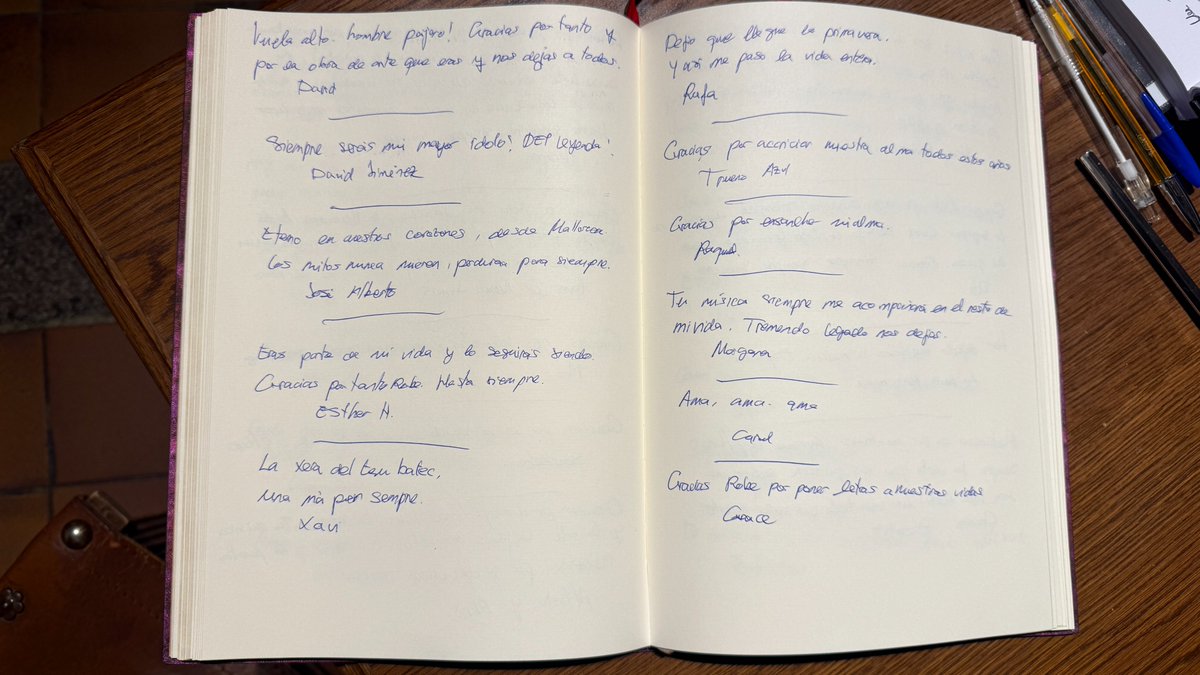 Vuela alto hombre pájaro! Gracias por tanto y
por la obra de arte que eras y nos dejas a todos.
David
Siempre serás mi mayor ídolo! DEP leyenda!
David Jiménez
Eterno en nuestros corazones, desde Mallorca.
Los mitos nunca mueren, perduran para siempre.
José Alberto
Eras parte de mi vida y lo seguirás siendo.
Gracias por tanto Robe. Hasta siempre.
Esther H.
La xera del teu batec,
una mà pren sempre.
Xavi
Dejo que llegue la primavera.
y así me paso la vida entera.
Rafa
Gracias por acariciar nuestra alma todos estos años
Trueno Azul
Gracias por ensanchar mi alma.
Raquel
Tu música siempre me acompañará en el resto de
mi vida. Tremendo legado nos dejas.
Morgana
Ama, ama. ama
Carol
Gracias Robe por poner letras a nuestras vidas
Grace